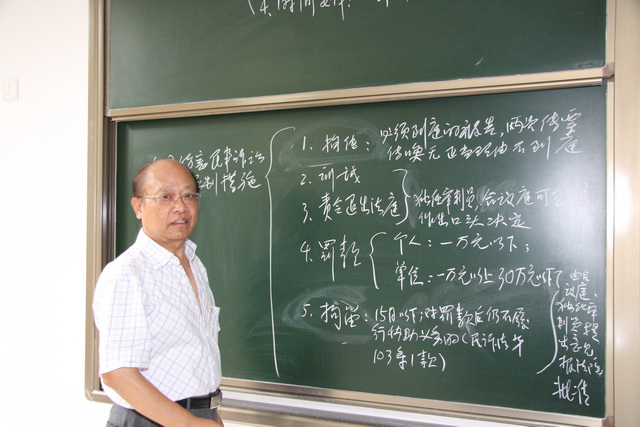 妨害民事诉讼
强制措施
1. 拘传：必须到庭的被告，两次传票
传唤无正当理由不到庭
2. 训诫
3. 责令退出法庭
独任审判员、合议庭可
作出口头决定
4. 罚款
个人：一万元以下；
单位：一万元以上30万元以下
5. 拘留：15日以下；对罚款后仍不履
行协助义务的（民诉法第
103条1款）
由合
议庭、
独任审
判员提
出意见
报法院
批准